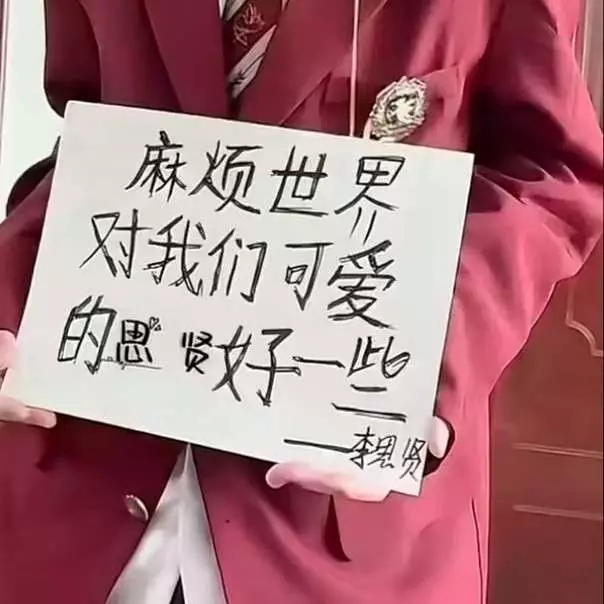 麻烦世界
对我们可爱
的思贤好一些
——李思贤